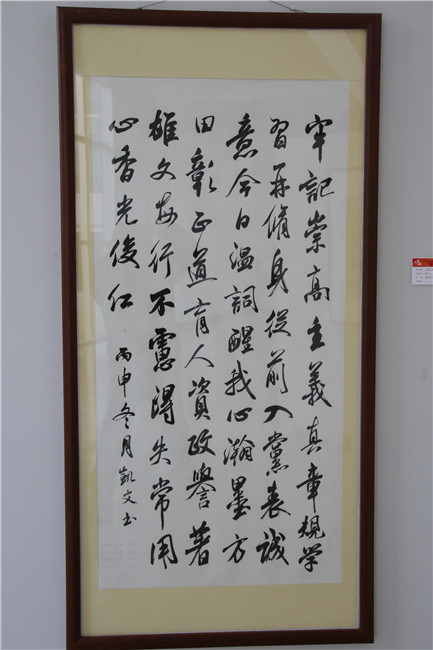 牢記崇高主義真章規学
習再脩身從前入黨表誠
意今日温詞醒我心瀚墨方
田彰正道育人資政譽著
雄文每行不慮得失常用
心香光俊仁
丙申冬月凱文书